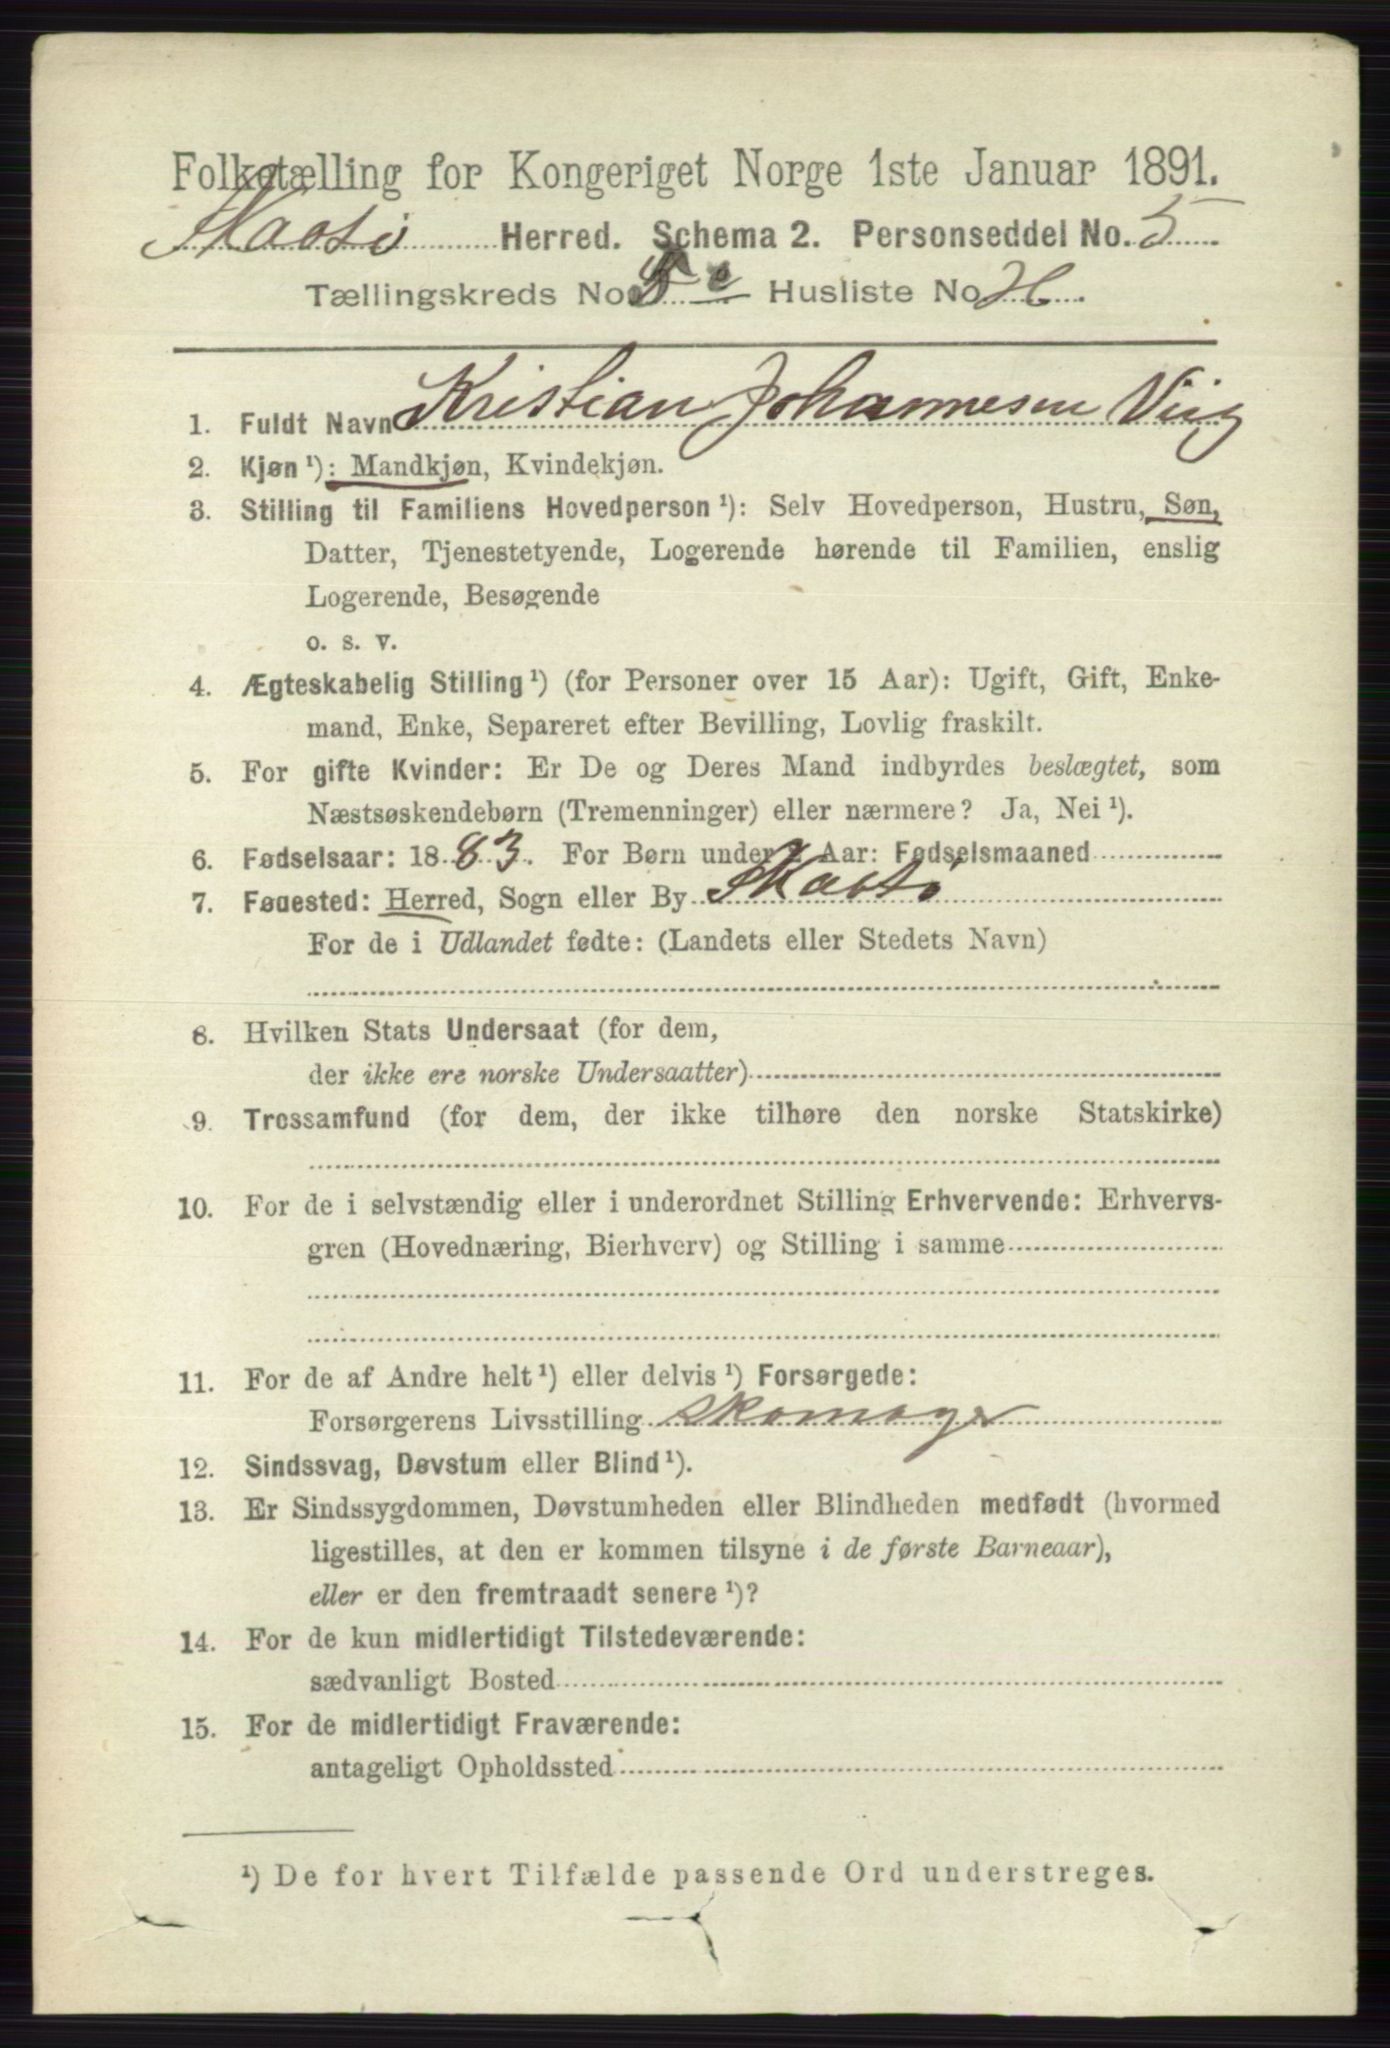 Folketælling for Kongeriget Norge 1ste Januar 1891.
Skaatø Herred. Schema 2. Personseddel No. 5
Tællingskreds No. 5 e Husliste No
1. Fuldt Navn Kristian Johannesen Viig
2. Kjøn ¹): Mandkjøn, Kvindekjøn.
3. Stilling til Familiens Hovedperson ¹): Selv Hovedperson, Hustru, Søn,
Datter, Tjenestetyende, Logerende hørende til Familien, enslig
Logerende, Besøgende
o. s. v.
4. Ægteskabelig Stilling ¹) (for Personer over 15 Aar): Ugift, Gift, Enke-
mand, Enke, Separeret efter Bevilling, Lovlig fraskilt.
5. For gifte Kvinder: Er De og Deres Mand indbyrdes beslægtet, som
Næstsøskendebørn (Tremenninger) eller nærmere? Ja, Nei ¹).
6. Fødselsaar: 1883. For Børn under 2 Aar: Fødselsmaaned
7. Fødested: Herred, Sogn eller By Skaatø
For de i Udlandet fødte: (Landets eller Stedets Navn)
8. Hvilken Stats Undersaat (for dem,
der ikke ere norske Undersaatter)
9. Trossamfund (for dem, der ikke tilhøre den norske Statskirke)
10. For de i selvstændig eller i underordnet Stilling Erhvervende: Erhvervs-
gren (Hovednæring, Bierhverv) og Stilling i samme
11. For de af Andre helt ¹) eller delvis ¹) Forsørgede:
Forsørgerens Livsstilling skomager
12. Sindssvag, Døvstum eller Blind ¹).
13. Er Sindssygdommen, Døvstumheden eller Blindheden medfødt (hvormed
ligestilles, at den er kommen tilsyne i de første Barneaar),
eller er den fremtraadt senere ¹)?
14. For de kun midlertidigt Tilstedeværende:
sædvanligt Bosted
15. For de midlertidigt Fraværende:
antageligt Opholdssted
¹) De for hvert Tilfælde passende Ord understreges.